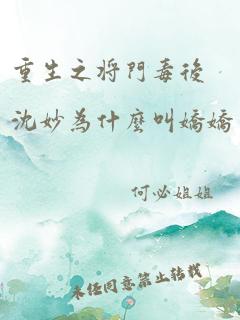 重生之将門毒後
沈妙為什麼叫嬌嬌
何必姐姐
未经同意禁止转载